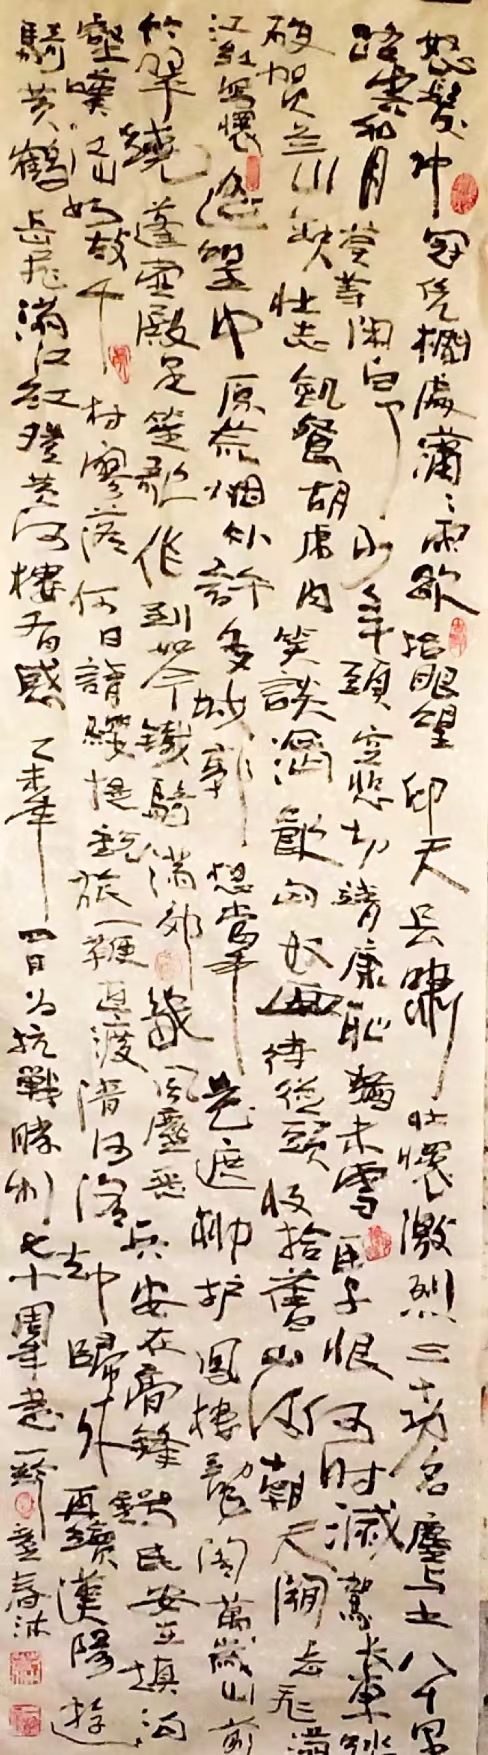 怒髮冲冠凭欄處瀟瀟雨歇抬眼望仰天長嘯壯懷激烈三十功名塵与土八千里
路雲和月莫等闲白了少年頭空悲切靖康耻猶未雪臣子恨何时滅駕長車踏
破贺兰山缺壮志飢餐胡虜肉笑談渴飲匈奴血待從頭收拾舊山河朝天闕岳飛满
江红寫懷遥望中原荒烟外許多城郭想當年花遮柳护鳳樓龍阁萬歲山前
珠翠繞蓬壺殿里笙歌作到如今鐵騎满郊畿風塵惡兵安在膏鋒鍔民安在填沟
壑嘆江山如故千村寥落何日請纓提銳旅一鞭直渡清河洛却歸来再續漢陽遊
騎黄鹤岳飛满江红登黄鹤樓有感乙未年四日为抗戰勝利七十周年書